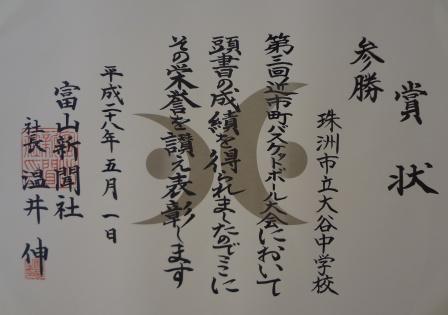 賞状
参勝
珠洲市立大谷中学校
第三回近市町バスケットボール大会において
頭書の成績を得られましたのでここに
その栄誉を讃え表彰します
平成二十八年五月一日
富山新聞社
社長 温井伸